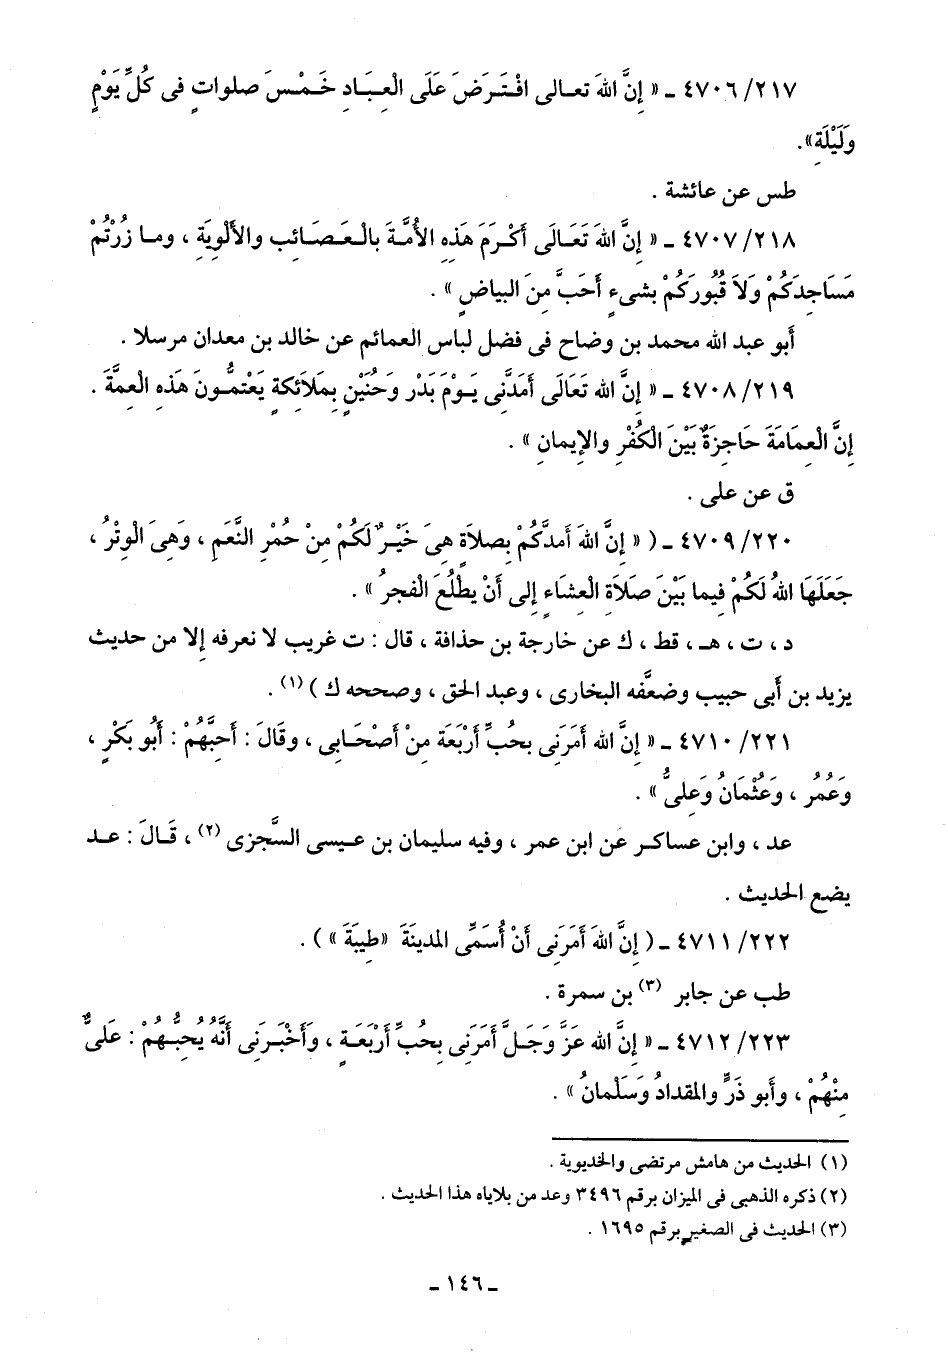 ٤٧٠٦/٢١٧ ـ « إنَّ اللهَ تعـالى افْتَـرَضَ عَلَى الْعِبَـادِ خَـمْـسَ صلواتٍ فى كُلِّ يَوْمٍ
وَلَيْلَةِ».
طس عن عائشة .
٤٧٠٧/٢١٨ ـ « إنَّ اللهَ تَعَـالَى أكْـرَمَ هَذِهِ الأمَّـةَ بالْـعَـصَائِب والألْوِيَةِ ، ومـا زُرْتُمْ
مَسَاجِدَكُمْ وَلاَ قُبُورَكُمْ بشىءٍ أحَبَّ مِنَ البياضِ » .
أبو عبد الله محمد بن وضاح فى فضل لباس العمائم عن خالد بن معدان مرسلا .
٤٧٠٨/٢١٩ ـ « إنَّ الله تَعَالَى أمَدَّنِى يَـوْمَ بَدْر وَحُنَيْنٍ بِمَلاَئكةٍ يَعْتمُّـونَ هَذه العمَّةَ .
إنَّ الْعِمَامَةَ حَاجِزَةٌ بَيْنَ الْكُفْرِ والإيمانِ » .
ق عن على .
٤٧٠٩/٢٢٠ ـ ( « إنَّ اللهَ أمدَّكُمْ بِصلاَةٍ هِىَ خَيْـرٌ لَكُمْ مِنْ حُمْرِ النَّعَمِ ، وَهِىَ الْوِتْرُ ،
جَعَلَهَا اللهُ لَكُمْ فِيما بَيْنَ صَلاَةِ الْعشَاءِ إلى أَنْ يطْلُعَ الْفجرُ » .
د ، ت ، هـ ، قط ، ك عن خارجة بن حذافة ، قال : ت غريب لا نعرفه إلا من حديث
يزيد بن أبى حبيب وضعَّفه البخارى ، وعبد الحق ، وصححه ك ) (١) .
٤٧١٠/٢٢١ ـ « إنَّ الله أمَرَنِى بحُبِّ أرْبَعَة مِنْ أصْحَـابِى ، وقَالَ : أحِبَّهُمْ : أبُو بَكْرٍ ،
وَعُمَرُ ، وَعُثْمَانُ وَعلِىُّ » .
عد ، وابن عساكـر عَن ابن عمر ، وفيه سليمان بن عـيسى السَّجزى (٢) ، قَـالَ : عـد
يضع الحديث .
٤٧١١/٢٢٢ ـ ( إنَّ اللهَ أمَرَنِى أنْ أُسَمِّى المدينَةَ «طيبَةَ » ) .
طب عن جابر (٣) بن سمرة .
٤٧١٢/٢٢٣ ـ « إنَّ الله عَزَّ وَجَلَّ أمَرَنِى بِحُبِّ أرْبَعَـةٍ ، وَأَخْبَـرَنِى أنَّهُ يُحبُّـهُمْ : عَلىٌّ
مِنْهُمْ ، وأبو ذَرٍّ والمقدادُ وَسَلْمانُ » .
(١) الحديث من هامش مرتضى والخديوية .
(٢) ذكره الذهبى فى الميزان برقم ٣٤٩٦ وعد من بلاياه هذا الحديث .
(٣) الحديث فى الصغير برقم ١٦٩٥ .
ـ ١٤٦ ـ